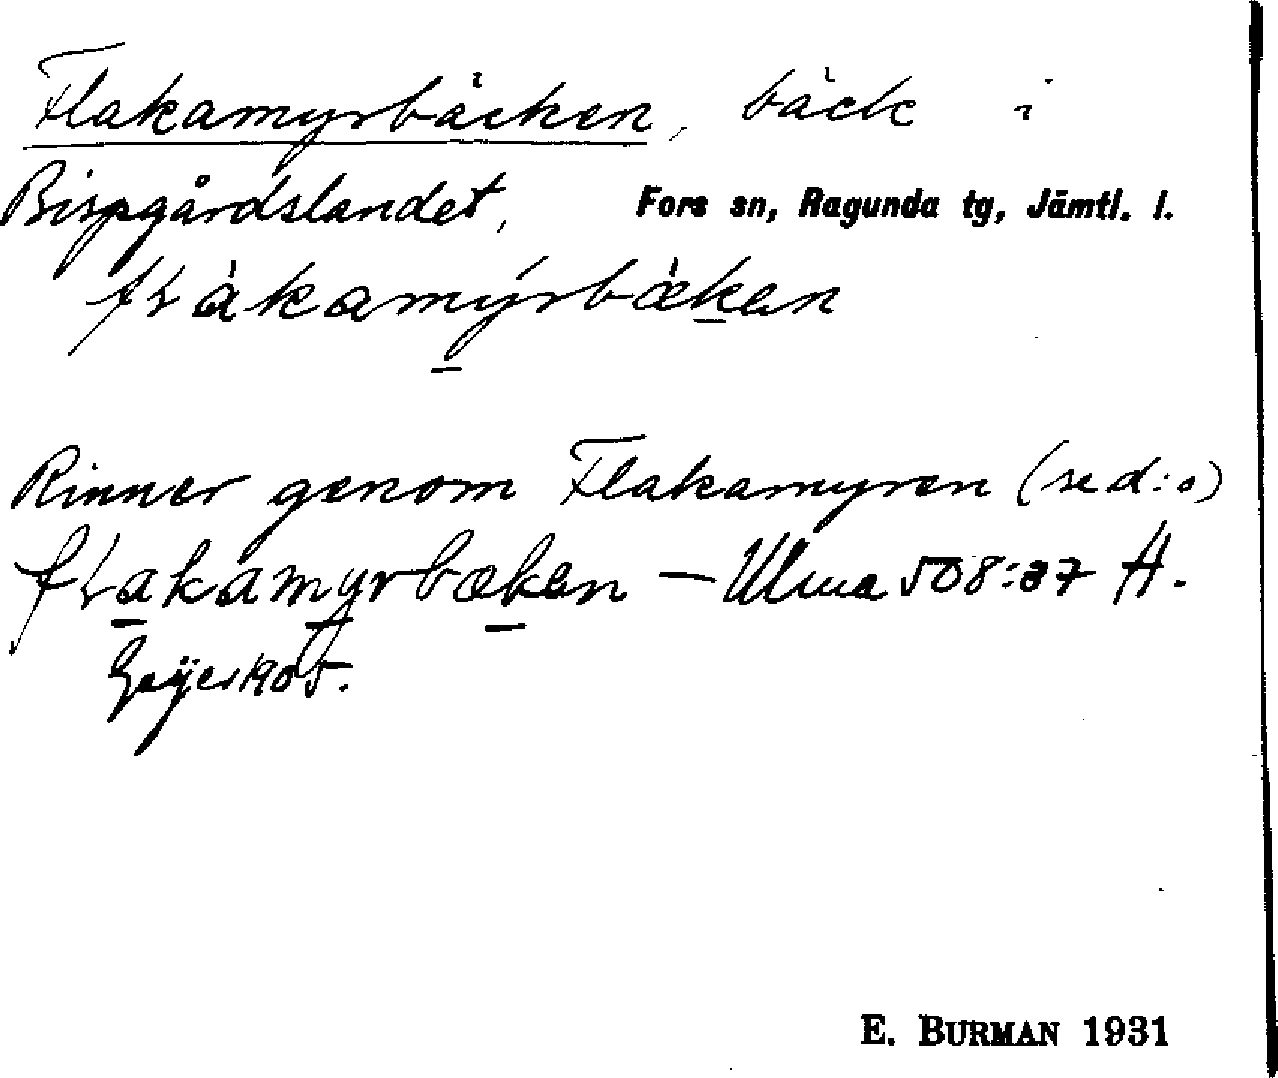 Flakamyrbäcken, bäck i
Bispgårdslandet, Fors sn, Ragunda tg, Jämtl. l.
fʟàkamýrbæ̀ken
Rinner genom Flakamyren (se d:o)
fʟakamyrbæken – Ulma 508:37 H.
Geijer 1905.
E. BURMAN 1931